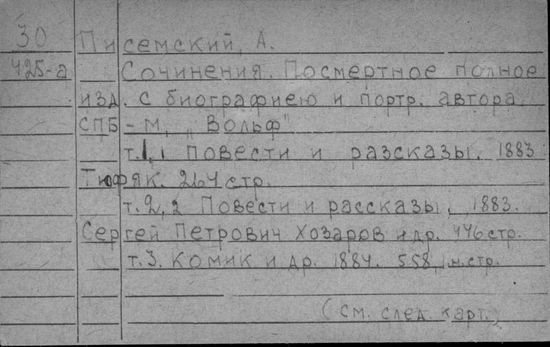 30 Писемский, А.
425-а Сочинения. Посмертное полное
изд. с биографиею и портр. автора.
СПБ - М, „Вольф"
т.1,1 Повести и разсказы. 1883
Тюфяк. 264 стр.
т.2,2 Повести и рассказы, 1883.
Сергей Петрович Хозаров и др. 446 стр.
т.3. Комик и др. 1884. 558 стр.
(см. след. карт.)